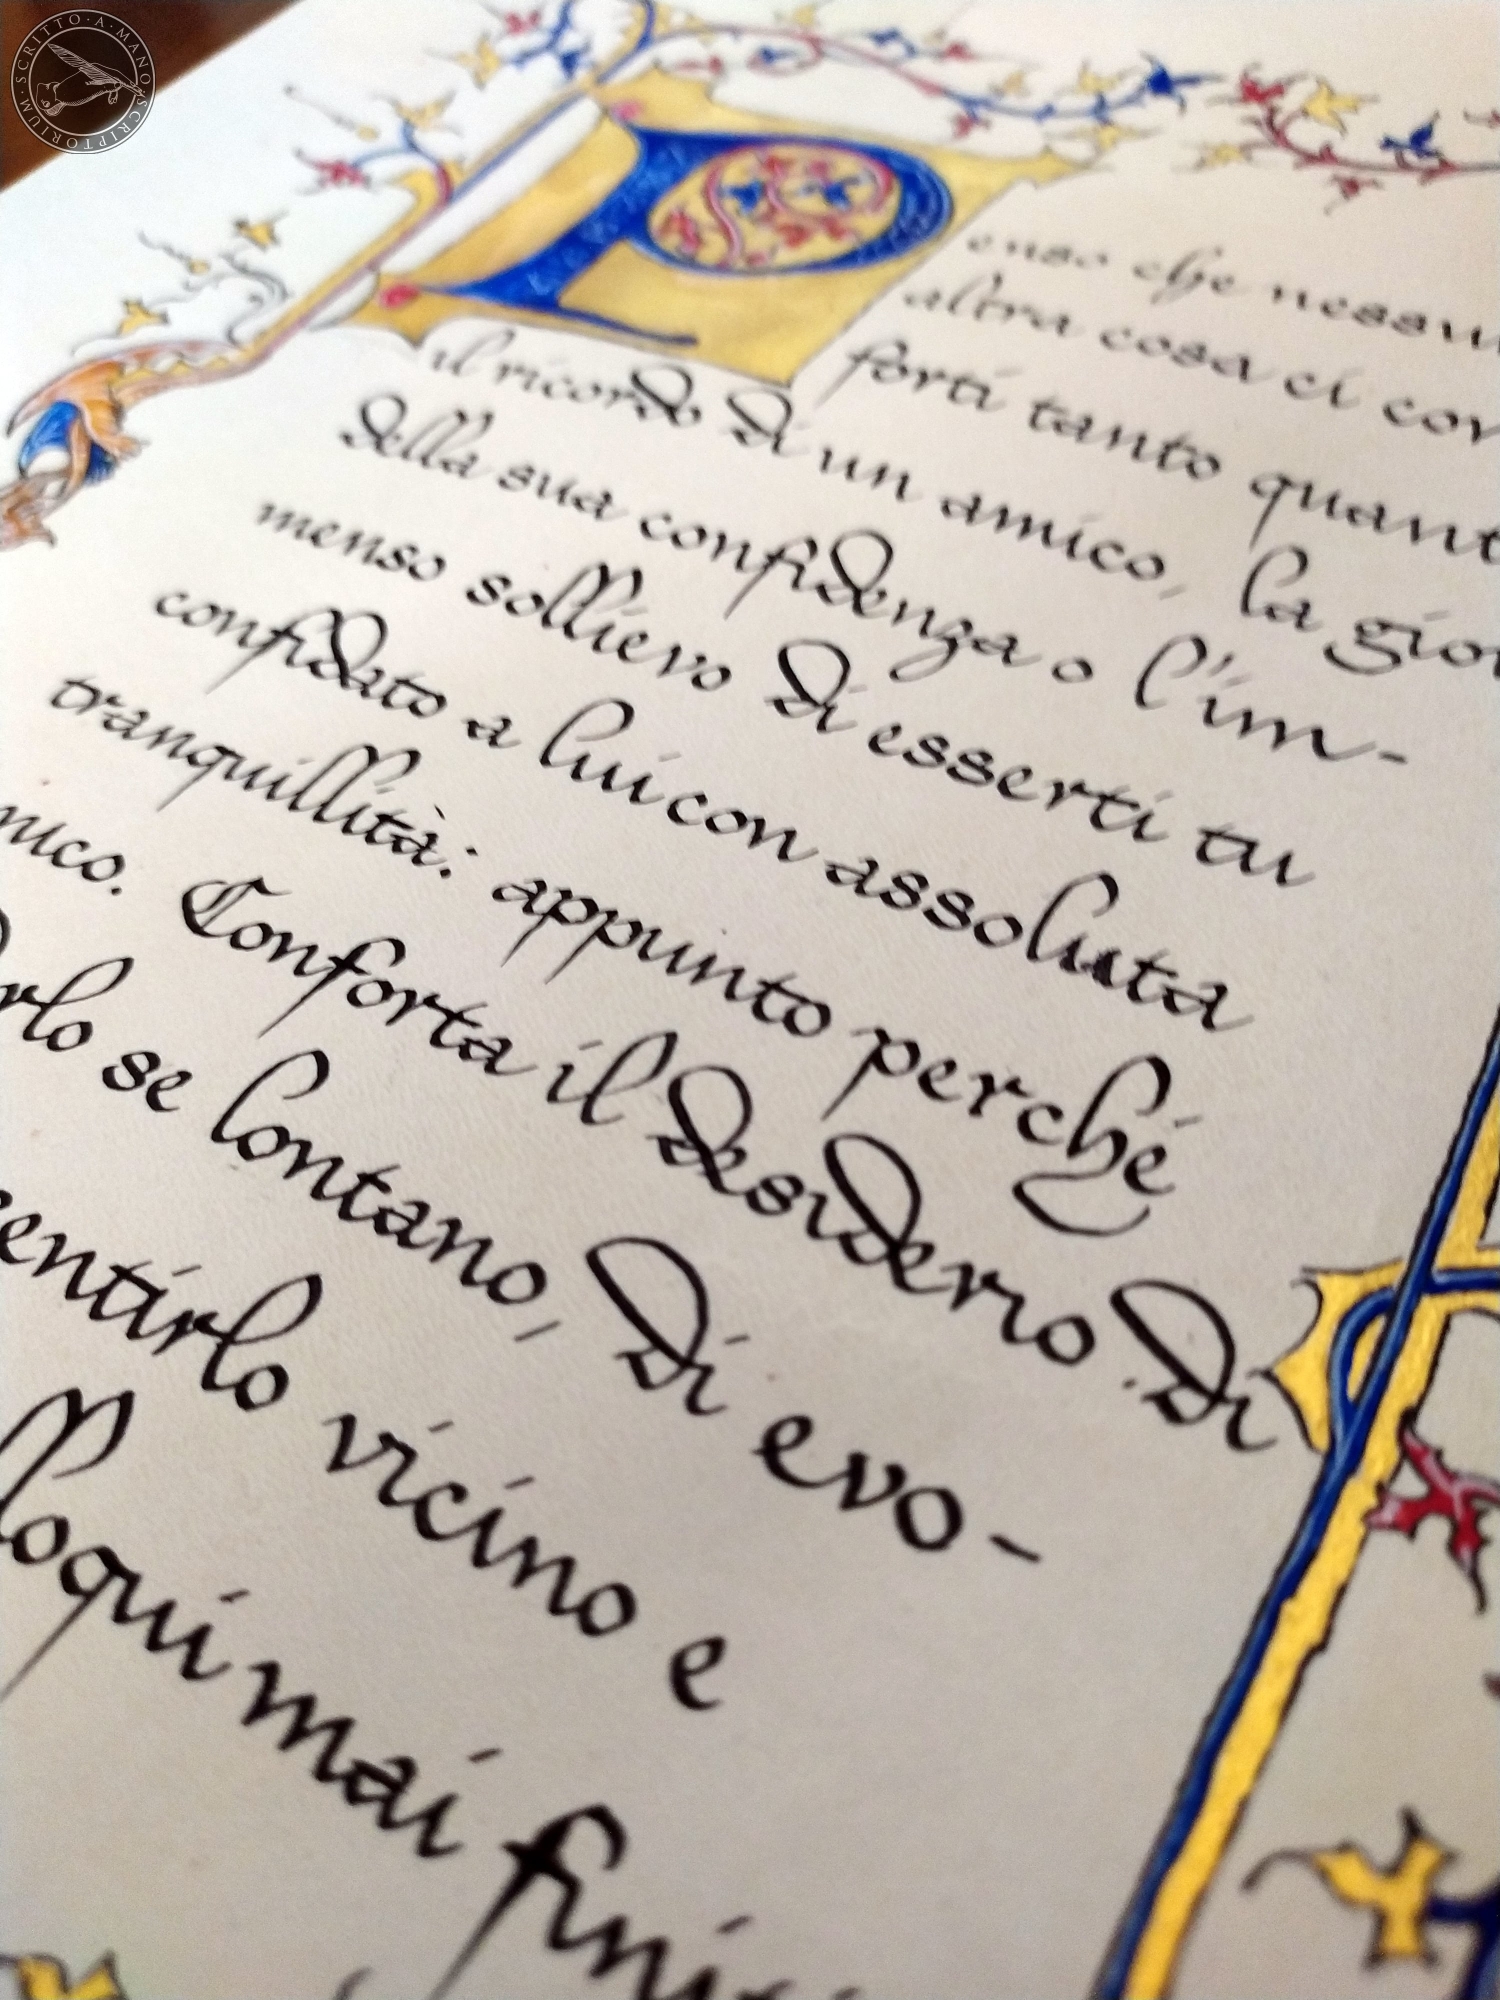 SCRITTO·A·MANO·SCRIPTORIUM·
Penso che nessu
altra cosa ci con
forti tanto quant
il ricordo di un amico, la gioi
della sua confidenza o l'im-
menso sollievo di esserti tu
confidato a lui con assoluta
tranquillità: appunto perché
mico. Conforta il desiderio di
rlo se lontano, di evo-
entirlo vicino e
lloqui mai finiti